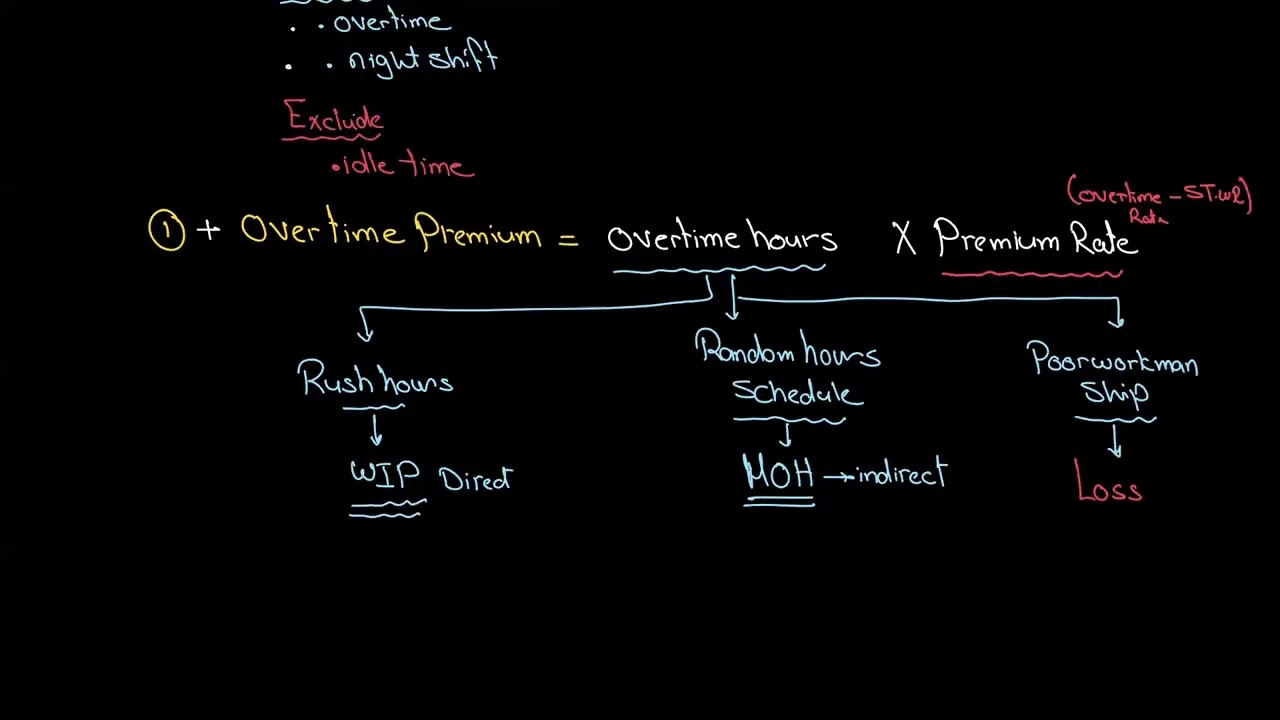 . . overtime
. . night shift
Exclude
. idle time
(overtime - ST.WR)
Rate
① + Overtime Premium = overtime hours X Premium Rate
Rush hours
Random hours
Schedule
Poor workman
Ship
WIP Direct
MOH → indirect
Loss